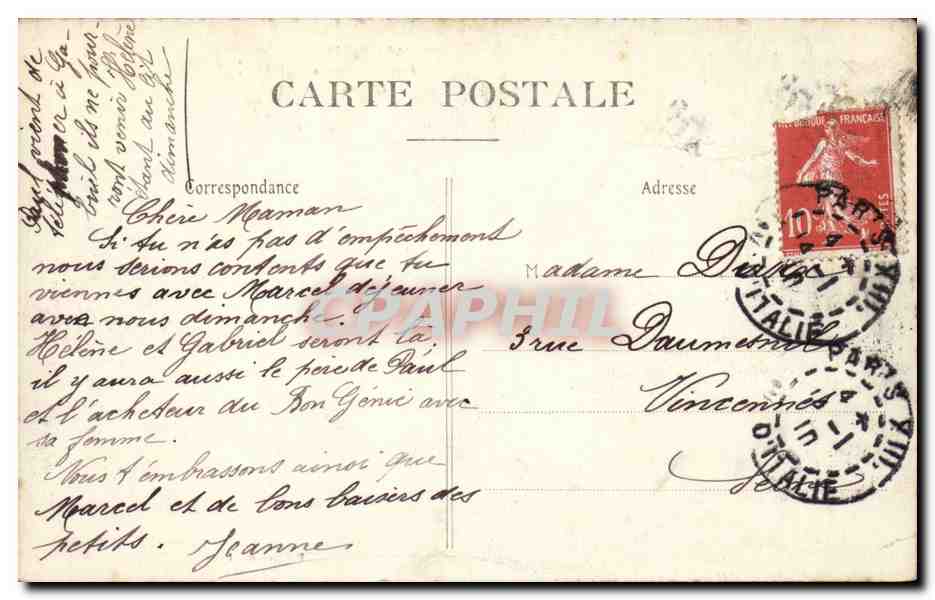 CARTE POSTALE
Correspondance
Adresse
Paul vient de
téléphoner à Ga-
briel ils ne pour-
ront venir Hélène
étant au lit
dimanche
Chère Maman
Si tu n'as pas d'empêchement
nous serions contents que tu
viennes avec Marcel déjeuner
avec nous dimanche.
Hélène et Gabriel seront là,
il y aura aussi le père de Paul
et l'acheteur du Bon Génie avec
sa femme.
Nous t'embrassons ainsi que
Marcel et de bons baisers des
petits. Jeanne
Madame
3 rue Daumesnil
Vincennes
Seine
REPUBLIQUE FRANÇAISE
10
PARIS XIII
D'ITALIE
PARIS XIII
D'ITALIE
CPAPHIL